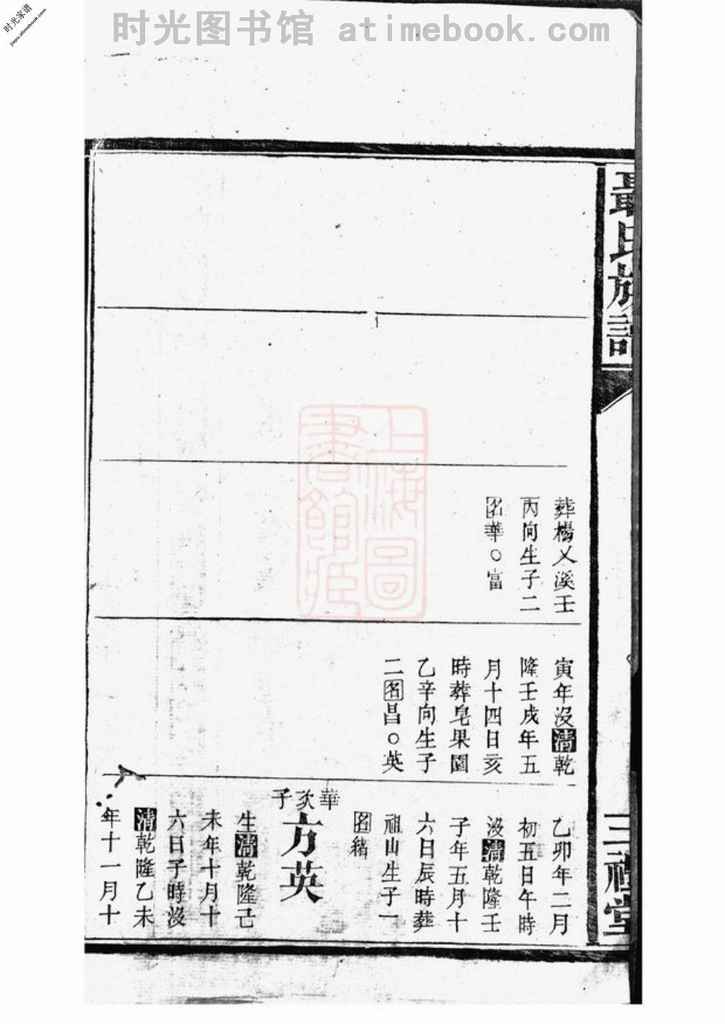 时光图书馆 atimebook.com
时光家谱
聶氏族譜
三禮堂
葬楊乂溪壬
丙向生子二
名華○富
寅年沒清乾
隆壬戌年五
月十四日亥
時葬皂果園
乙辛向生子
二名昌○英
乙卯年二月
初五日午時
沒清乾隆壬
子年五月十
六日辰時葬
祖山生子一
名緒
華次子
方英
生清乾隆己
未年十月十
六日子時沒
清乾隆乙未
年十一月十
上海圖
書館藏